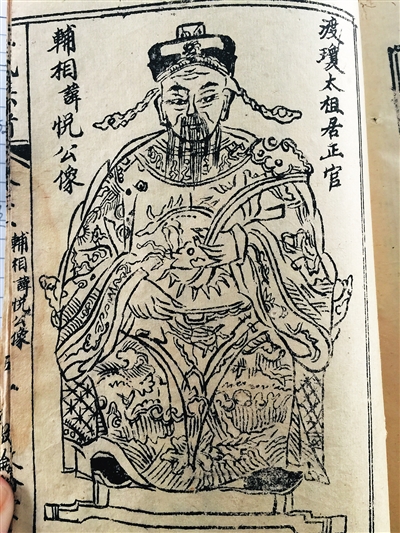 渡瓊太祖居正官
輔相諱悦公像
輔相諱悅公像